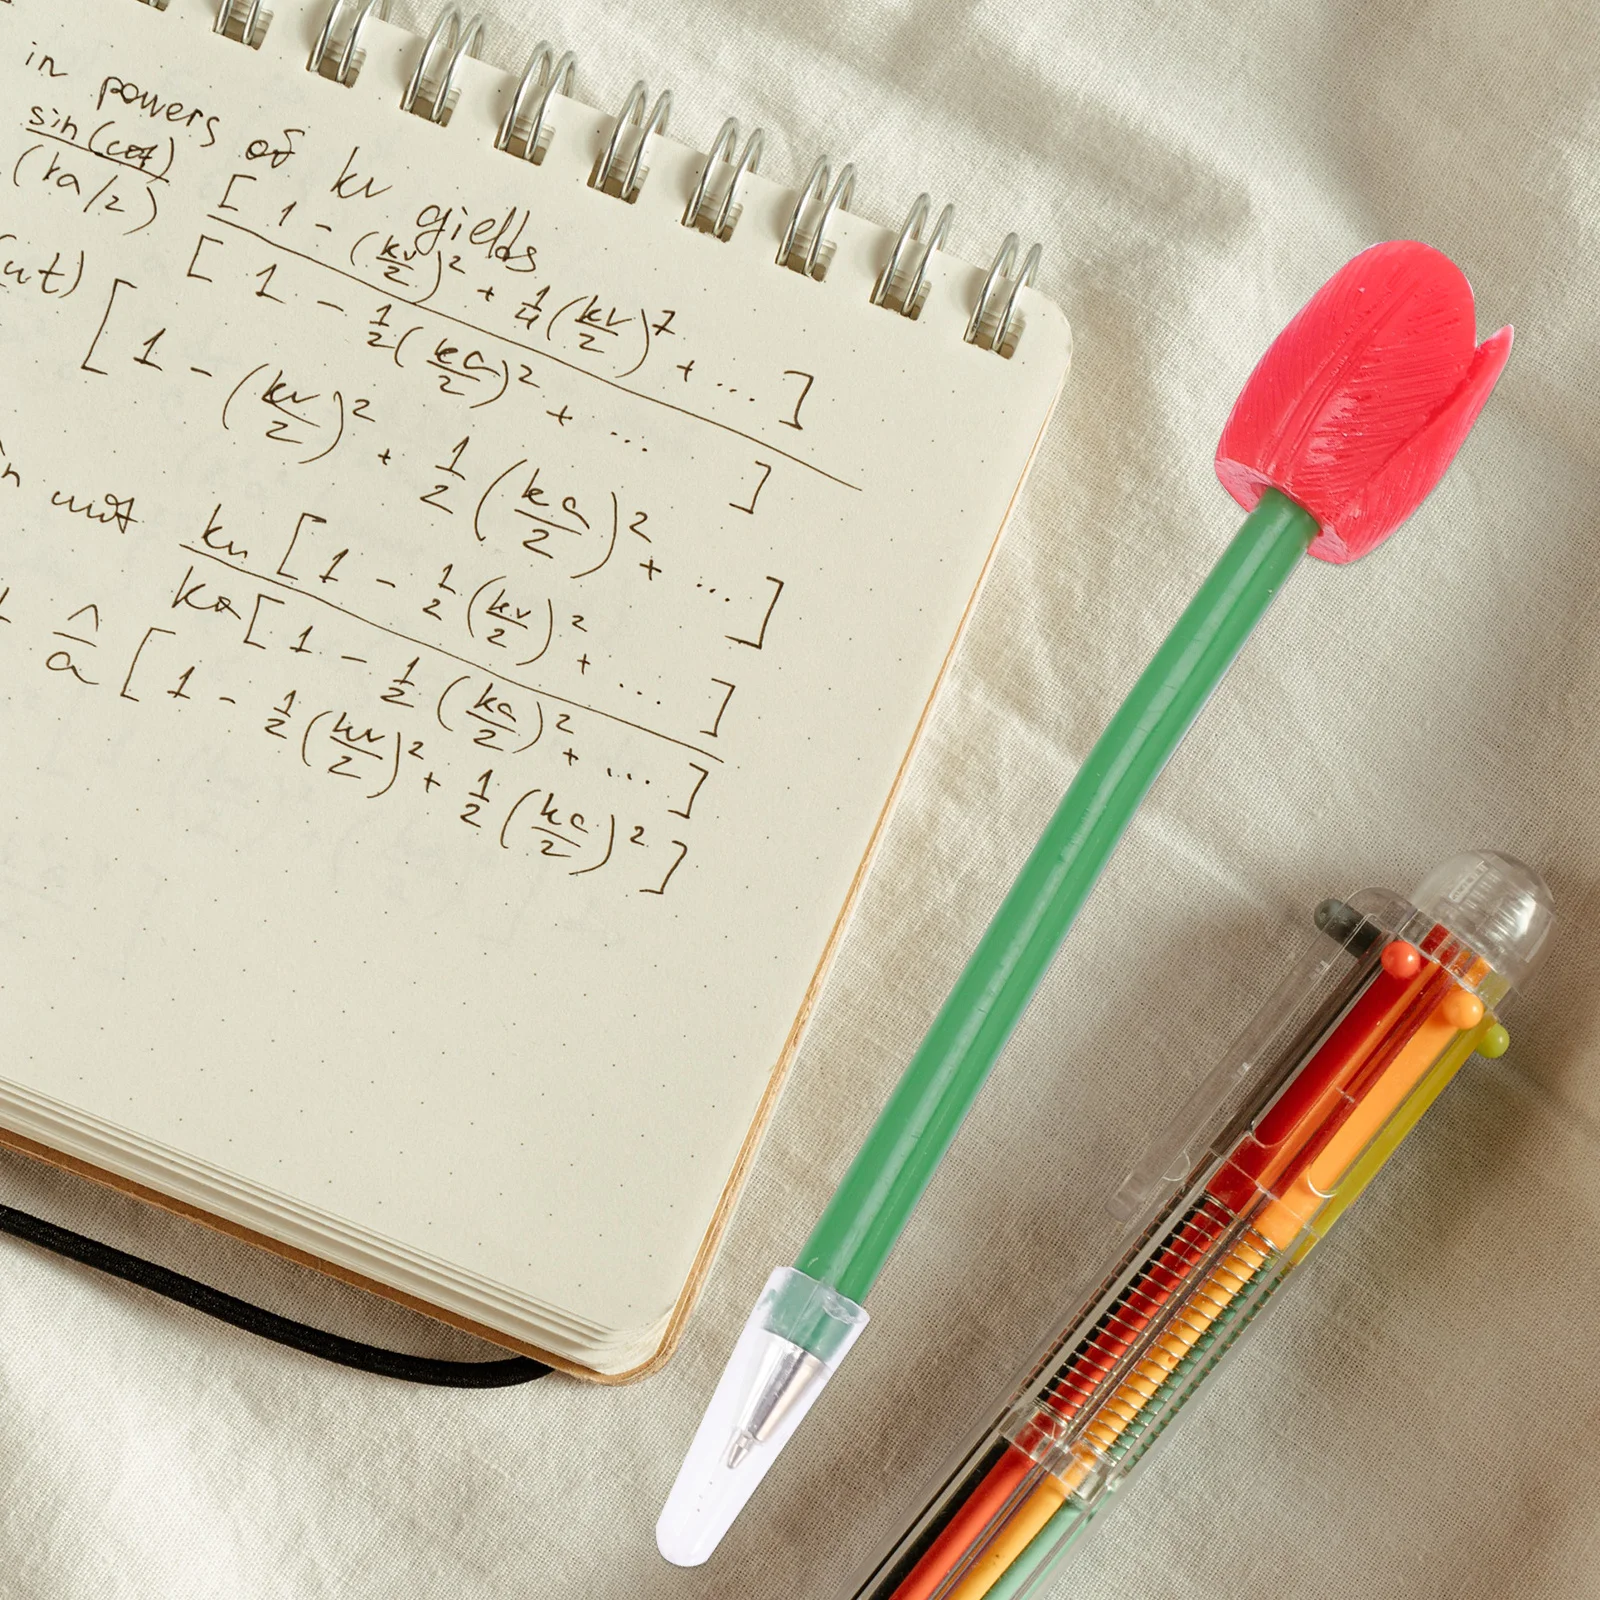 in powers of kv gields
sin(cot) [1 - (kv/2)² + 1/4(kv/2)⁷ + ...]
(ka/2) [1 - 1/2(ka/2)² + ... ]
ut) [1 - (kv/2)² + 1/2(ka/2)² + ...]
kv [1 - 1/2(kv/2)² + ... ]
ka [1 - 1/2(ka/2)² + ... ]
a [1 - 1/2(kv/2)² + 1/2(ka/2)²]